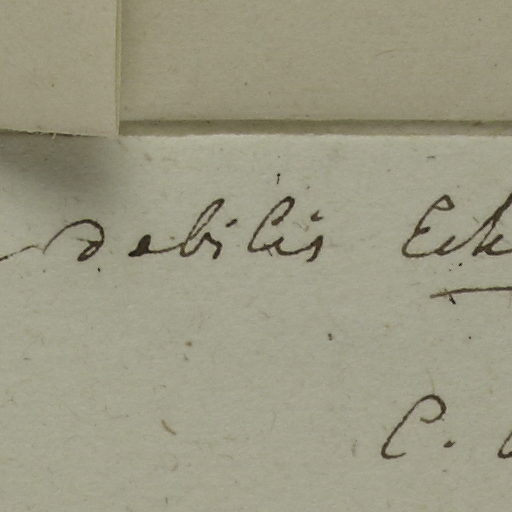 debilis Eck
C.